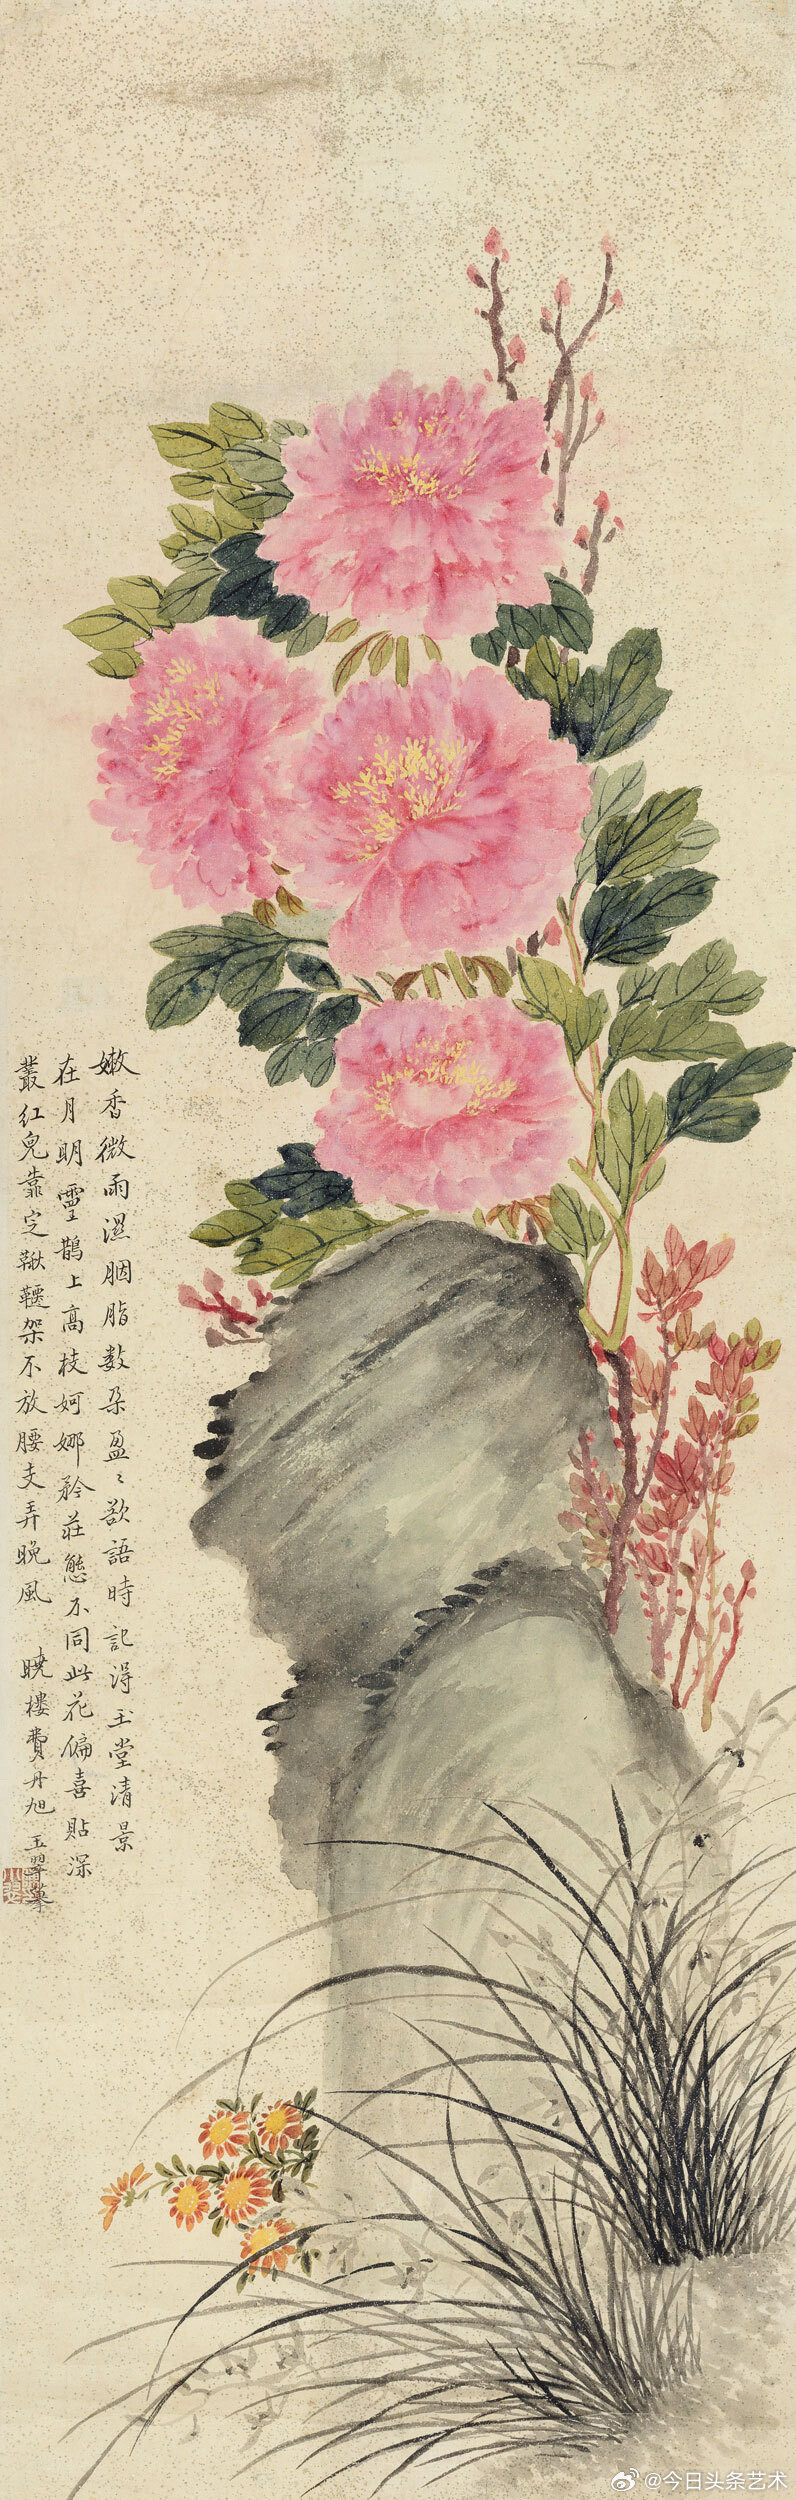 嫩香微雨濕胭脂數朵盈〻欲語時記得玉堂清景
在月明靈鵲上高枝婀娜矜莊態不同此花偏喜貼深
叢紅兒靠定鞦韆架不放腰支弄晚風
曉樓費丹旭 玉翠摹
@今日头条艺术